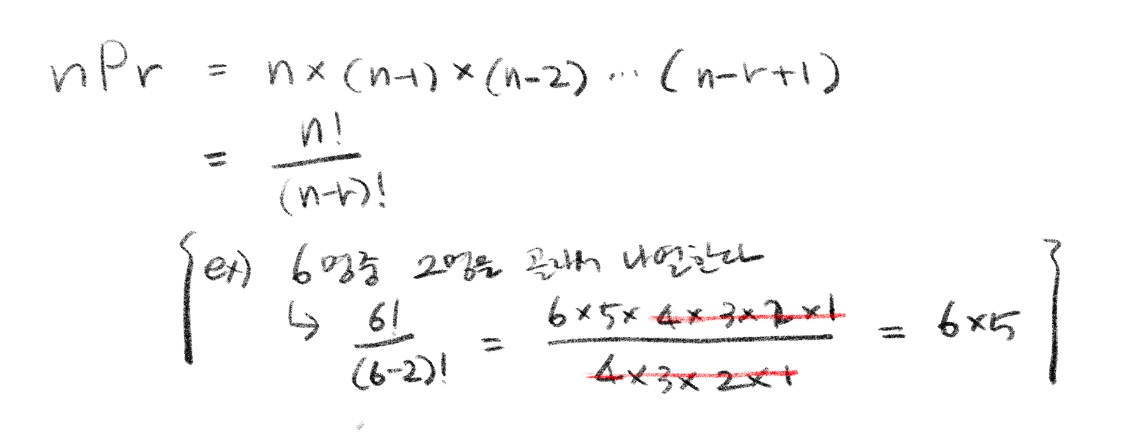 nPr = n × (n-1) × (n-2) … (n-r+1)
= n! / (n-r)!
ex) 6명중 2명을 골라서 나열한다
↳ 6! / (6-2)! = 6×5×4×3×2×1 / 4×3×2×1 = 6×5